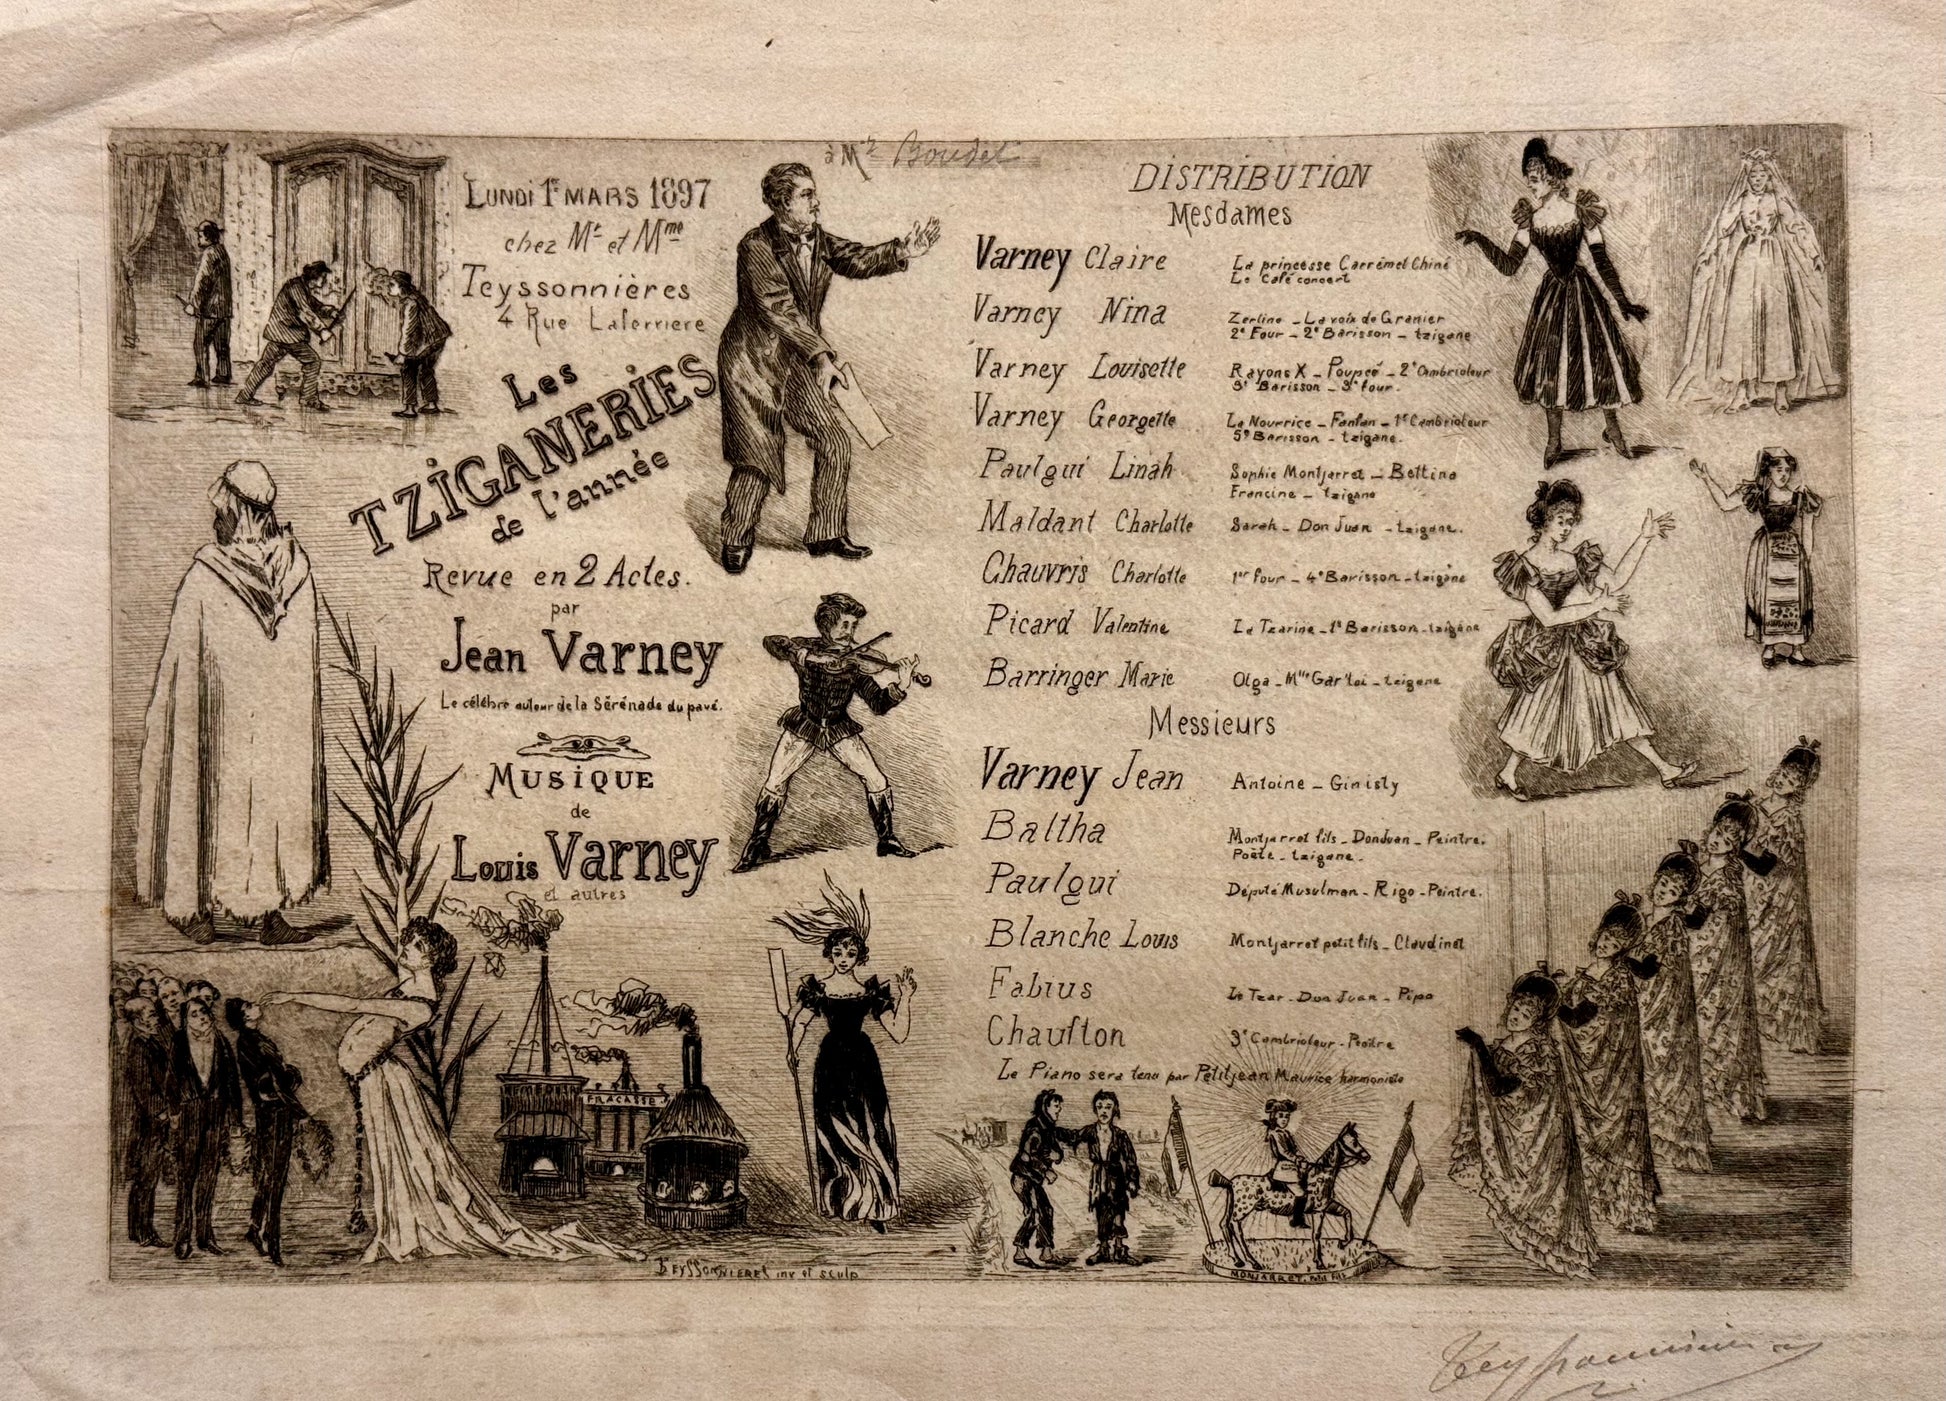 à Mr Boudet
LUNDI 1er MARS 1897
chez Mr et Mme
Teyssonnières
4 Rue Laferriere
Les
TZIGANERIES
de l'année
Revue en 2 Actes.
par
Jean Varney
Le célèbre auteur de la Sérénade du pavé.
MUSIQUE
de
Louis Varney
et autres
FRACASSE
CARMAUX
TEYSSONNIERES inv et sculp
DISTRIBUTION
Mesdames
Varney Claire La princesse Carrémel Chiné
Le Café concert
Varney Nina Zerline - La voix de Granier
2e Four - 2e Barisson - tzigane
Varney Louisette Rayons X - Poupée - 2e Cambrioleur
3e Barisson - 3e four.
Varney Georgette La Nourrice - Fanfan - 1er Cambrioleur
5e Barisson - tzigane.
Paulgui Linah Sophie Montjarret - Bettina
Francine - tzigane
Maldant Charlotte Sarah - Don Juan - tzigane.
Chauvris Charlotte 1er four - 4e Barisson - tzigane
Picard Valentine La Tzarine - 1e Barisson - tzigane
Barringer Marie Olga - Mlle Gar'toi - tzigane
Messieurs
Varney Jean Antoine - Ginisty
Baltha Montjarret fils - Don Juan - Peintre.
Poète - tzigane.
Paulgui Député Musulman - Rigo - Peintre.
Blanche Louis Montjarret petit fils - Claudinet
Fabius Le Tzar - Don Juan - Pipo
Chaufton 3e Cambrioleur - Peintre
Le Piano sera tenu par Petitjean Maurice harmoniste
MONJARRET
Teyssonnières